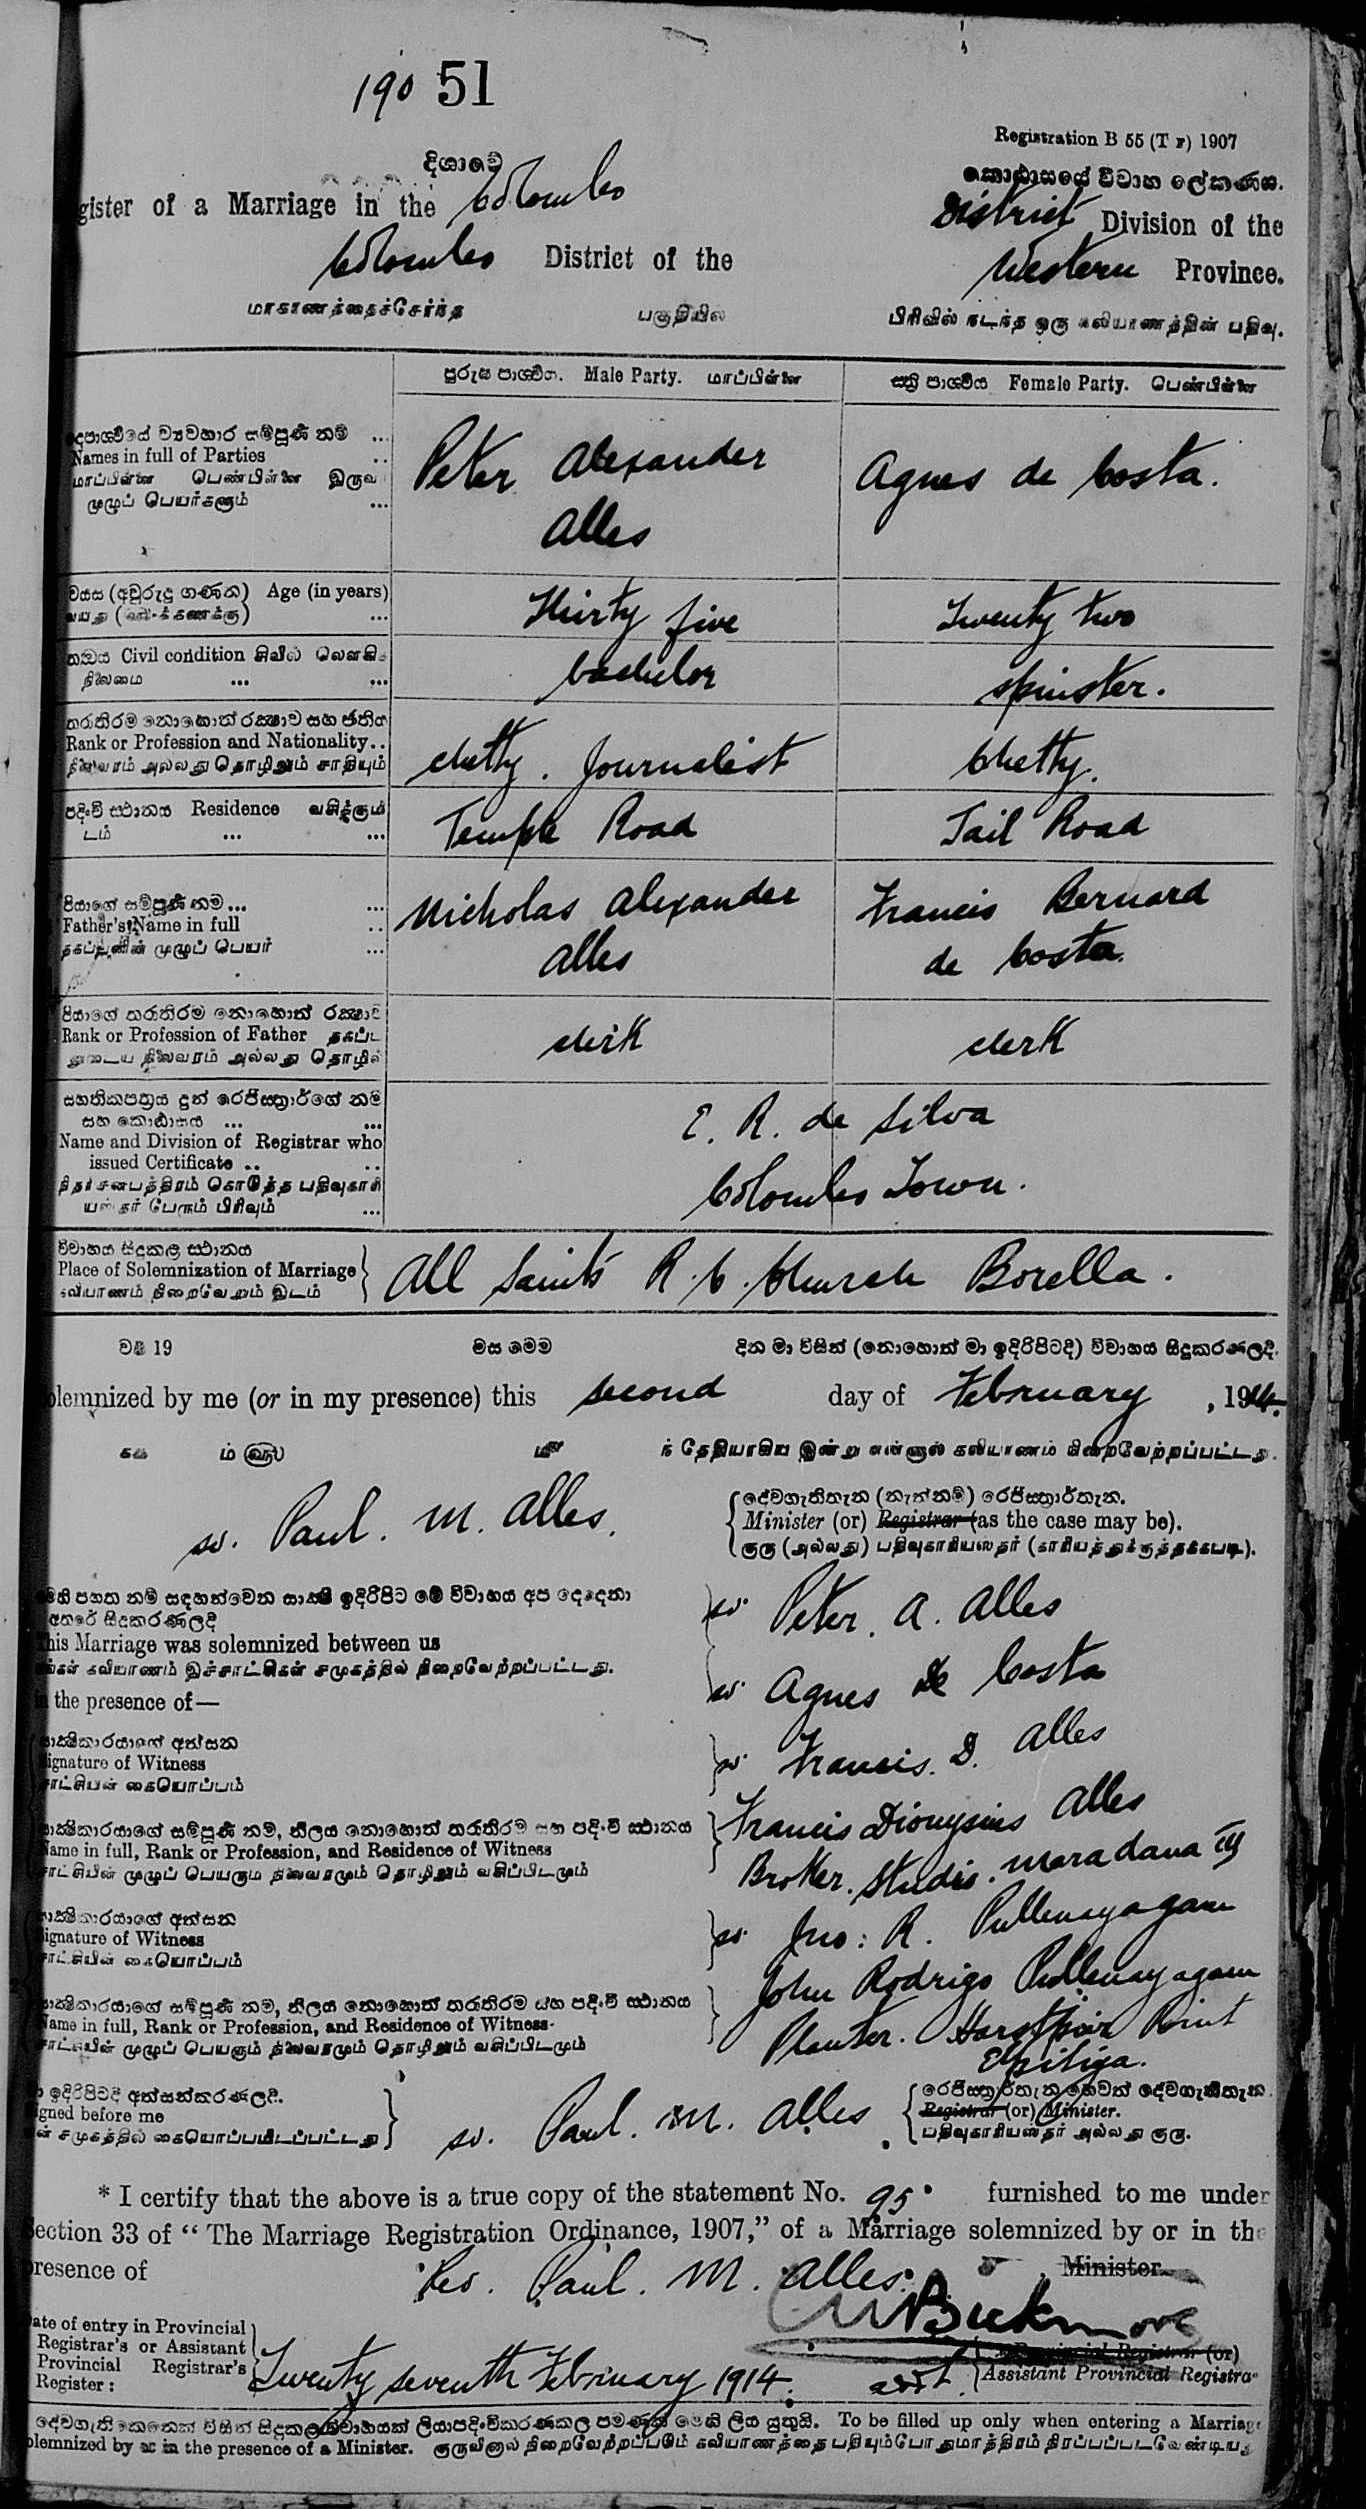 190 51
Registration B 55 (T F) 1907
දිසාවේ
කොට්ඨාසයේ විවාහ ලේකණය.
gister of a Marriage in the Colombo District Division of the
Colombo District of the Western Province.
மாகாணத்தைச்சேர்ந்த பகுதியில் பிரிவில் நடந்த ஒரு கலியாணத்தின் பதிவு.
පුරුෂ පාර්ශ්වය. Male Party. மாப்பிள்ளை ස්ත්‍රී පාර්ශ්වය Female Party. பெண்பிள்ளை
Names in full of Parties
மாப்பிள்ளை பெண்பிள்ளை இருவ
முழுப் பெயர்களும் ...
Peter Alexander Alles
Agnes de Costa.
වයස (අවුරුදු ගණන) Age (in years)
Thirty five Twenty two
Civil condition சிவில்
நிலைமை ... ...
bachelor spinster.
තරාතිරම නොහොත් රක්ෂාව සහ ජාතිය
Rank or Profession and Nationality..
நிலைவரம் அல்லது தொழிலும் சாதியும்
chetty. Journalist Chetty.
පදිංචි ස්ථානය Residence வசிக்கும்
டம் ... ...
Temple Road Jail Road
පියාගේ සම්පූර්ණ නම ... ...
Father's Name in full ..
தகப்பனின் முழுப் பெயர் ...
Nicholas Alexander Alles
Francis Bernard de Costa.
පියාගේ තරාතිරම නොහොත් රක්ෂාව
Rank or Profession of Father தகப்ப
னுடைய நிலைவரம் அல்லது தொழில்
clerk clerk
සහතිකපත්‍රය දුන් රෙජිස්ත්‍රාර්ගේ නම
සහ කොට්ඨාසය ... ...
Name and Division of Registrar who
issued Certificate .. ..
நிதர்சனபத்திரம் கொடுத்த பதிவுகாரி
யஸ்தர் பேரும் பிரிவும் ...
E. R. de Silva
Colombo Town.
විවාහය සිදුකල ස්ථානය
Place of Solemnization of Marriage
கலியாணம் நிறைவேறும் இடம்
All Saints R. C. Church Borella.
වර්‍ෂ 19 මස මෙම දින මා විසින් (නොහොත් මා ඉදිරිපිටදී) විවාහය සිදුකරණලදි.
olemnized by me (or in my presence) this second day of February, 1914.
ந் தேதியாகிய இன்று என்னால் கலியாணம் நிறைவேற்றப்பட்டது.
sd. Paul. M. Alles.
දේවගැතිතැන (නැත්නම්) රෙජිස්ත්‍රාර්තැන.
Minister (or) Registrar (as the case may be).
குரு (அல்லது) பதிவுகாரியஸ்தர் (காரியத்துக்குத்தக்கபடி).
මෙහි පහත නම් සඳහන්වෙන සාක්ෂි ඉදිරිපිට මේ විවාහය අප දෙදෙනා
අතරේ සිදුකරණලදි
his Marriage was solemnized between us
ங்கள் கலியாணம் இச்சாட்சிகள் சமுகத்தில் நிறைவேற்றப்பட்டது.
n the presence of—
sd. Peter. A. Alles
sd. Agnes de Costa
සාක්ෂිකාරයාගේ අත්සන
ignature of Witness
சாட்சியின் கையொப்பம்
sd. Francis. D. Alles
සාක්ෂිකාරයාගේ සම්පූර්ණ නම, නිලය නොහොත් තරාතිරම සහ පදිංචි ස්ථානය
Name in full, Rank or Profession, and Residence of Witness
சாட்சியின் முழுப் பெயரும் நிலைவரமும் தொழிலும் வசிப்பிடமும்
Francis Dionysius Alles
Broker. Studio. Maradana
සාක්ෂිකාරයාගේ අත්සන
ignature of Witness
சாட்சியின் கையொப்பம்
sd. Jno: R. Pullenayagam
සාක්ෂිකාරයාගේ සම්පූර්ණ නම, නිලය නොහොත් තරාතිරම සහ පදිංචි ස්ථානය
Name in full, Rank or Profession, and Residence of Witness
சாட்சியின் முழுப் பெயரும் நிலைவரமும் தொழிலும் வசிப்பிடமும்
John Rodrigo Pullenayagam
Planter. Point
Elpitiya.
මා ඉදිරිපිටදී අත්සන්කරණලදි.
igned before me
ன் சமுகத்தில் கையொப்பமிடப்பட்டது
sd. Paul. M. Alles
රෙජිස්ත්‍රාර්තැන හෙවත් දේවගැතිතැන.
Registrar (or) Minister.
பதிவுகாரியஸ்தர் அல்லது குரு.
* I certify that the above is a true copy of the statement No. 95 furnished to me under
Section 33 of “The Marriage Registration Ordinance, 1907,” of a Marriage solemnized by or in the
presence of Rev. Paul. M. Alles. Minister
ate of entry in Provincial
Registrar's or Assistant
Provincial Registrar's
Register :
Twenty seventh February 1914.
Provincial Registrar (or)
Assistant Provincial Registra
දේවගැති කෙනෙක් විසින් සිදුකල විවාහයක් ලියාපදිංචිකරණකල පමණක් මෙහි ලිය යුතුයි. To be filled up only when entering a Marriage
olemnized by or in the presence of a Minister. குருவினால் நிறைவேற்றப்படும் கலியாணத்தை பதியும்போதுமாத்திரம் நிரப்பப்படவேண்டியது